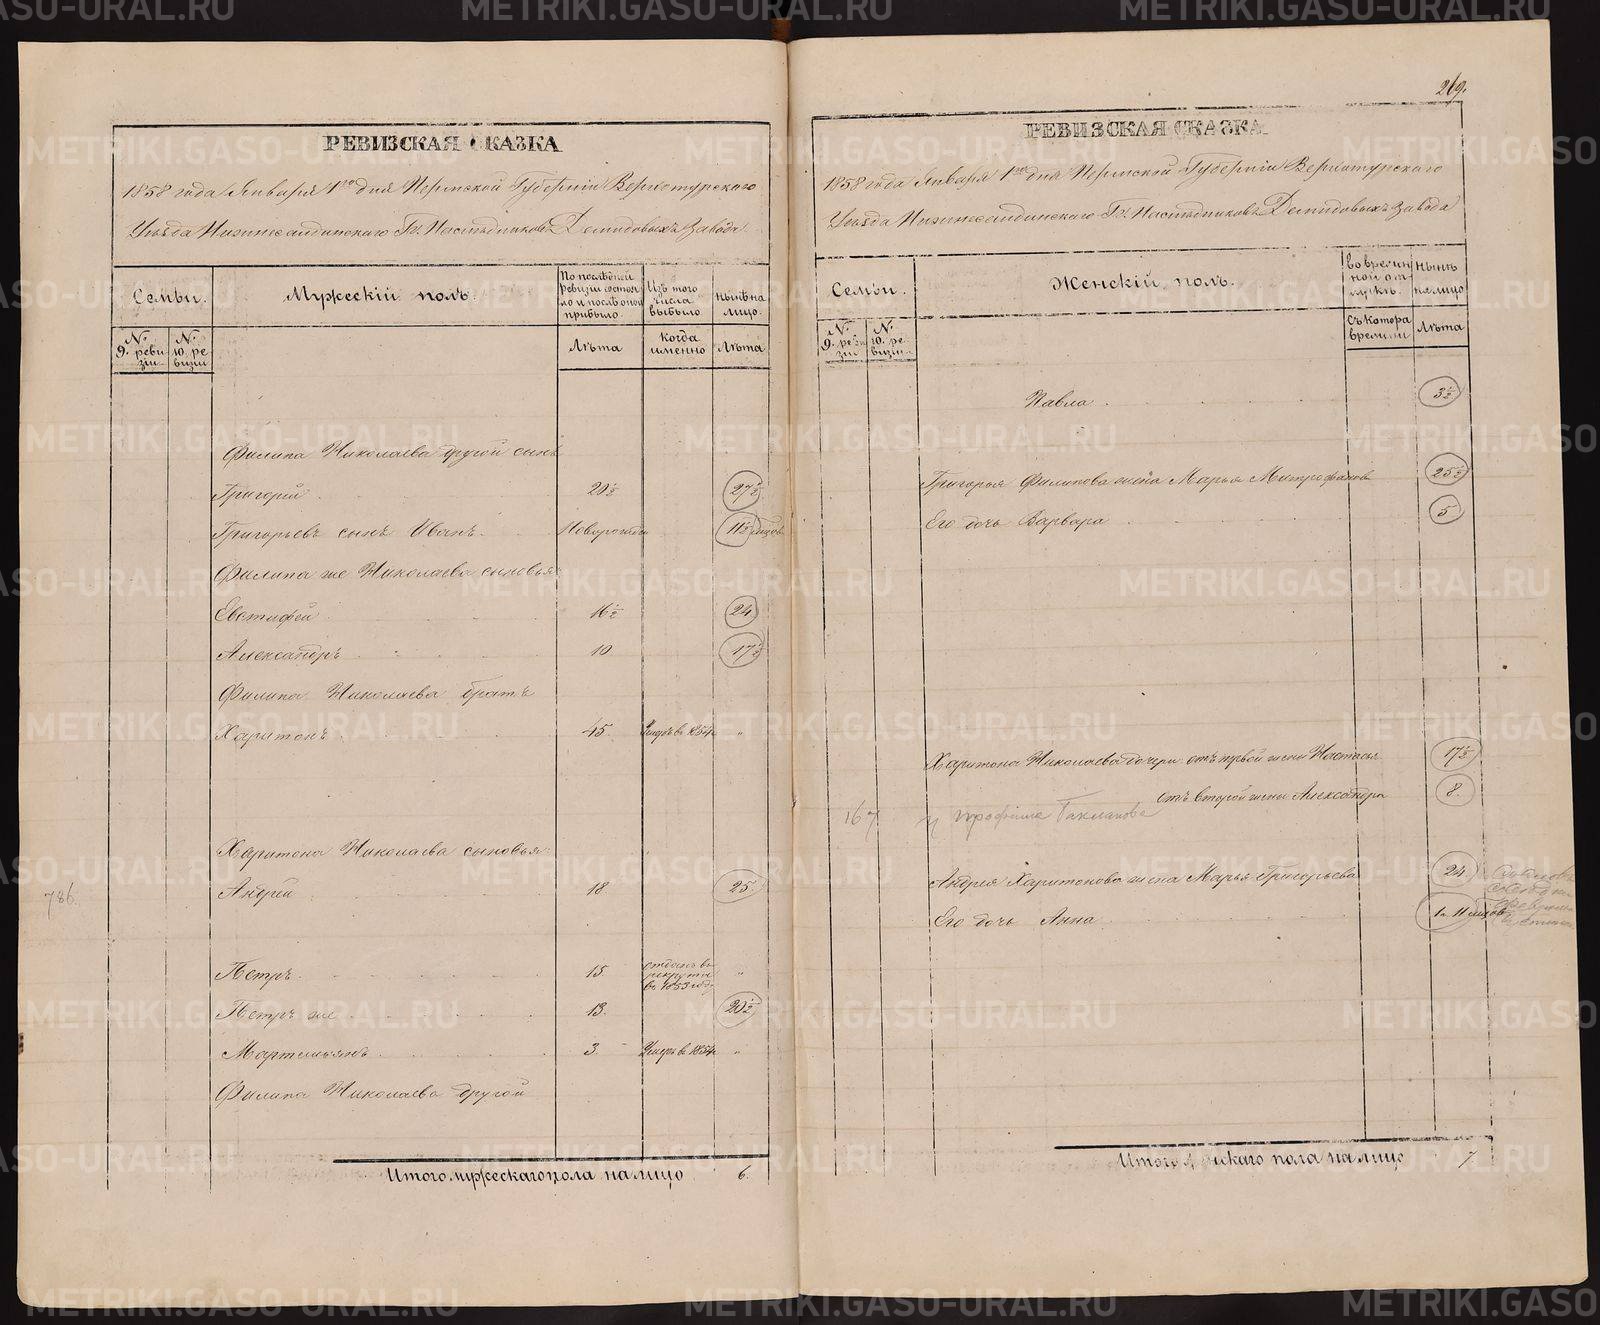 РЕВИЗСКАЯ СКАЗКА
1858 года Января 1го дня Пермской Губерніи Верхотурскаго
Уѣзда Нижнесалдинскаго Гг. Наслѣдниковъ Демидовыхъ Завода
Семьи.
Мужескій полъ.
По послѣдней ревизіи состояло и послѣ оной прибыло.
Изъ того числа выбыло
нынѣ на лицо.
№ 9. ревизіи
№ 10. ревизіи
Лѣта
Когда именно
Лѣта
Филипа Николаева другой сынъ
Григорій 20½ 27½
Григорьевъ сынъ Иванъ. Новорожден 11½
Филипа же Николаева сыновья
Евстифей 16½ 24
Александръ 10 17½
Филипа Николаева братъ
Харитонъ 45. Умеръ в 1854г "
Харитона Николаева сыновья
786.
Андрей 18 25.
Петръ. 15. отданъ в рекруты в 1853 году "
Петръ же 13. 20½
Мартемьянъ 3. Умеръ в 1854г "
Филипа Николаева другой
Итого мужескаго пола на лицо 6.
269.
РЕВИЗСКАЯ СКАЗКА
1858 года Января 1го дня Пермской Губерніи Верхотурскаго
Уѣзда Нижнесалдинскаго Гг. Наслѣдниковъ Демидовыхъ Завода
Семьи.
Женскій полъ.
во временной отлучкѣ.
нынѣ на лицо
№ 9. ревизіи
№ 10. ревизіи
Съ котора времени
Лѣта
Павла 3½
Григорья Филипова жена Марья Митрофанова 25½
Его дочь Варвара 5
Харитона Николаева дочери отъ первой жены Настасья 17½
отъ второй жены Александра 8.
167
Андрея Харитонова жена Марья Григорьева 24.
Его дочь Анна 1 11 мѣсяцов
Итого женскаго пола на лицо 7